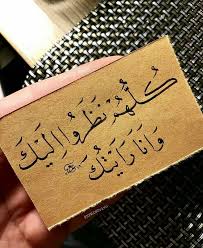 كُلُّهُمْ نَظَرُوا إِلَيْكَ
وَأَنَا رَأَيْتُكَ